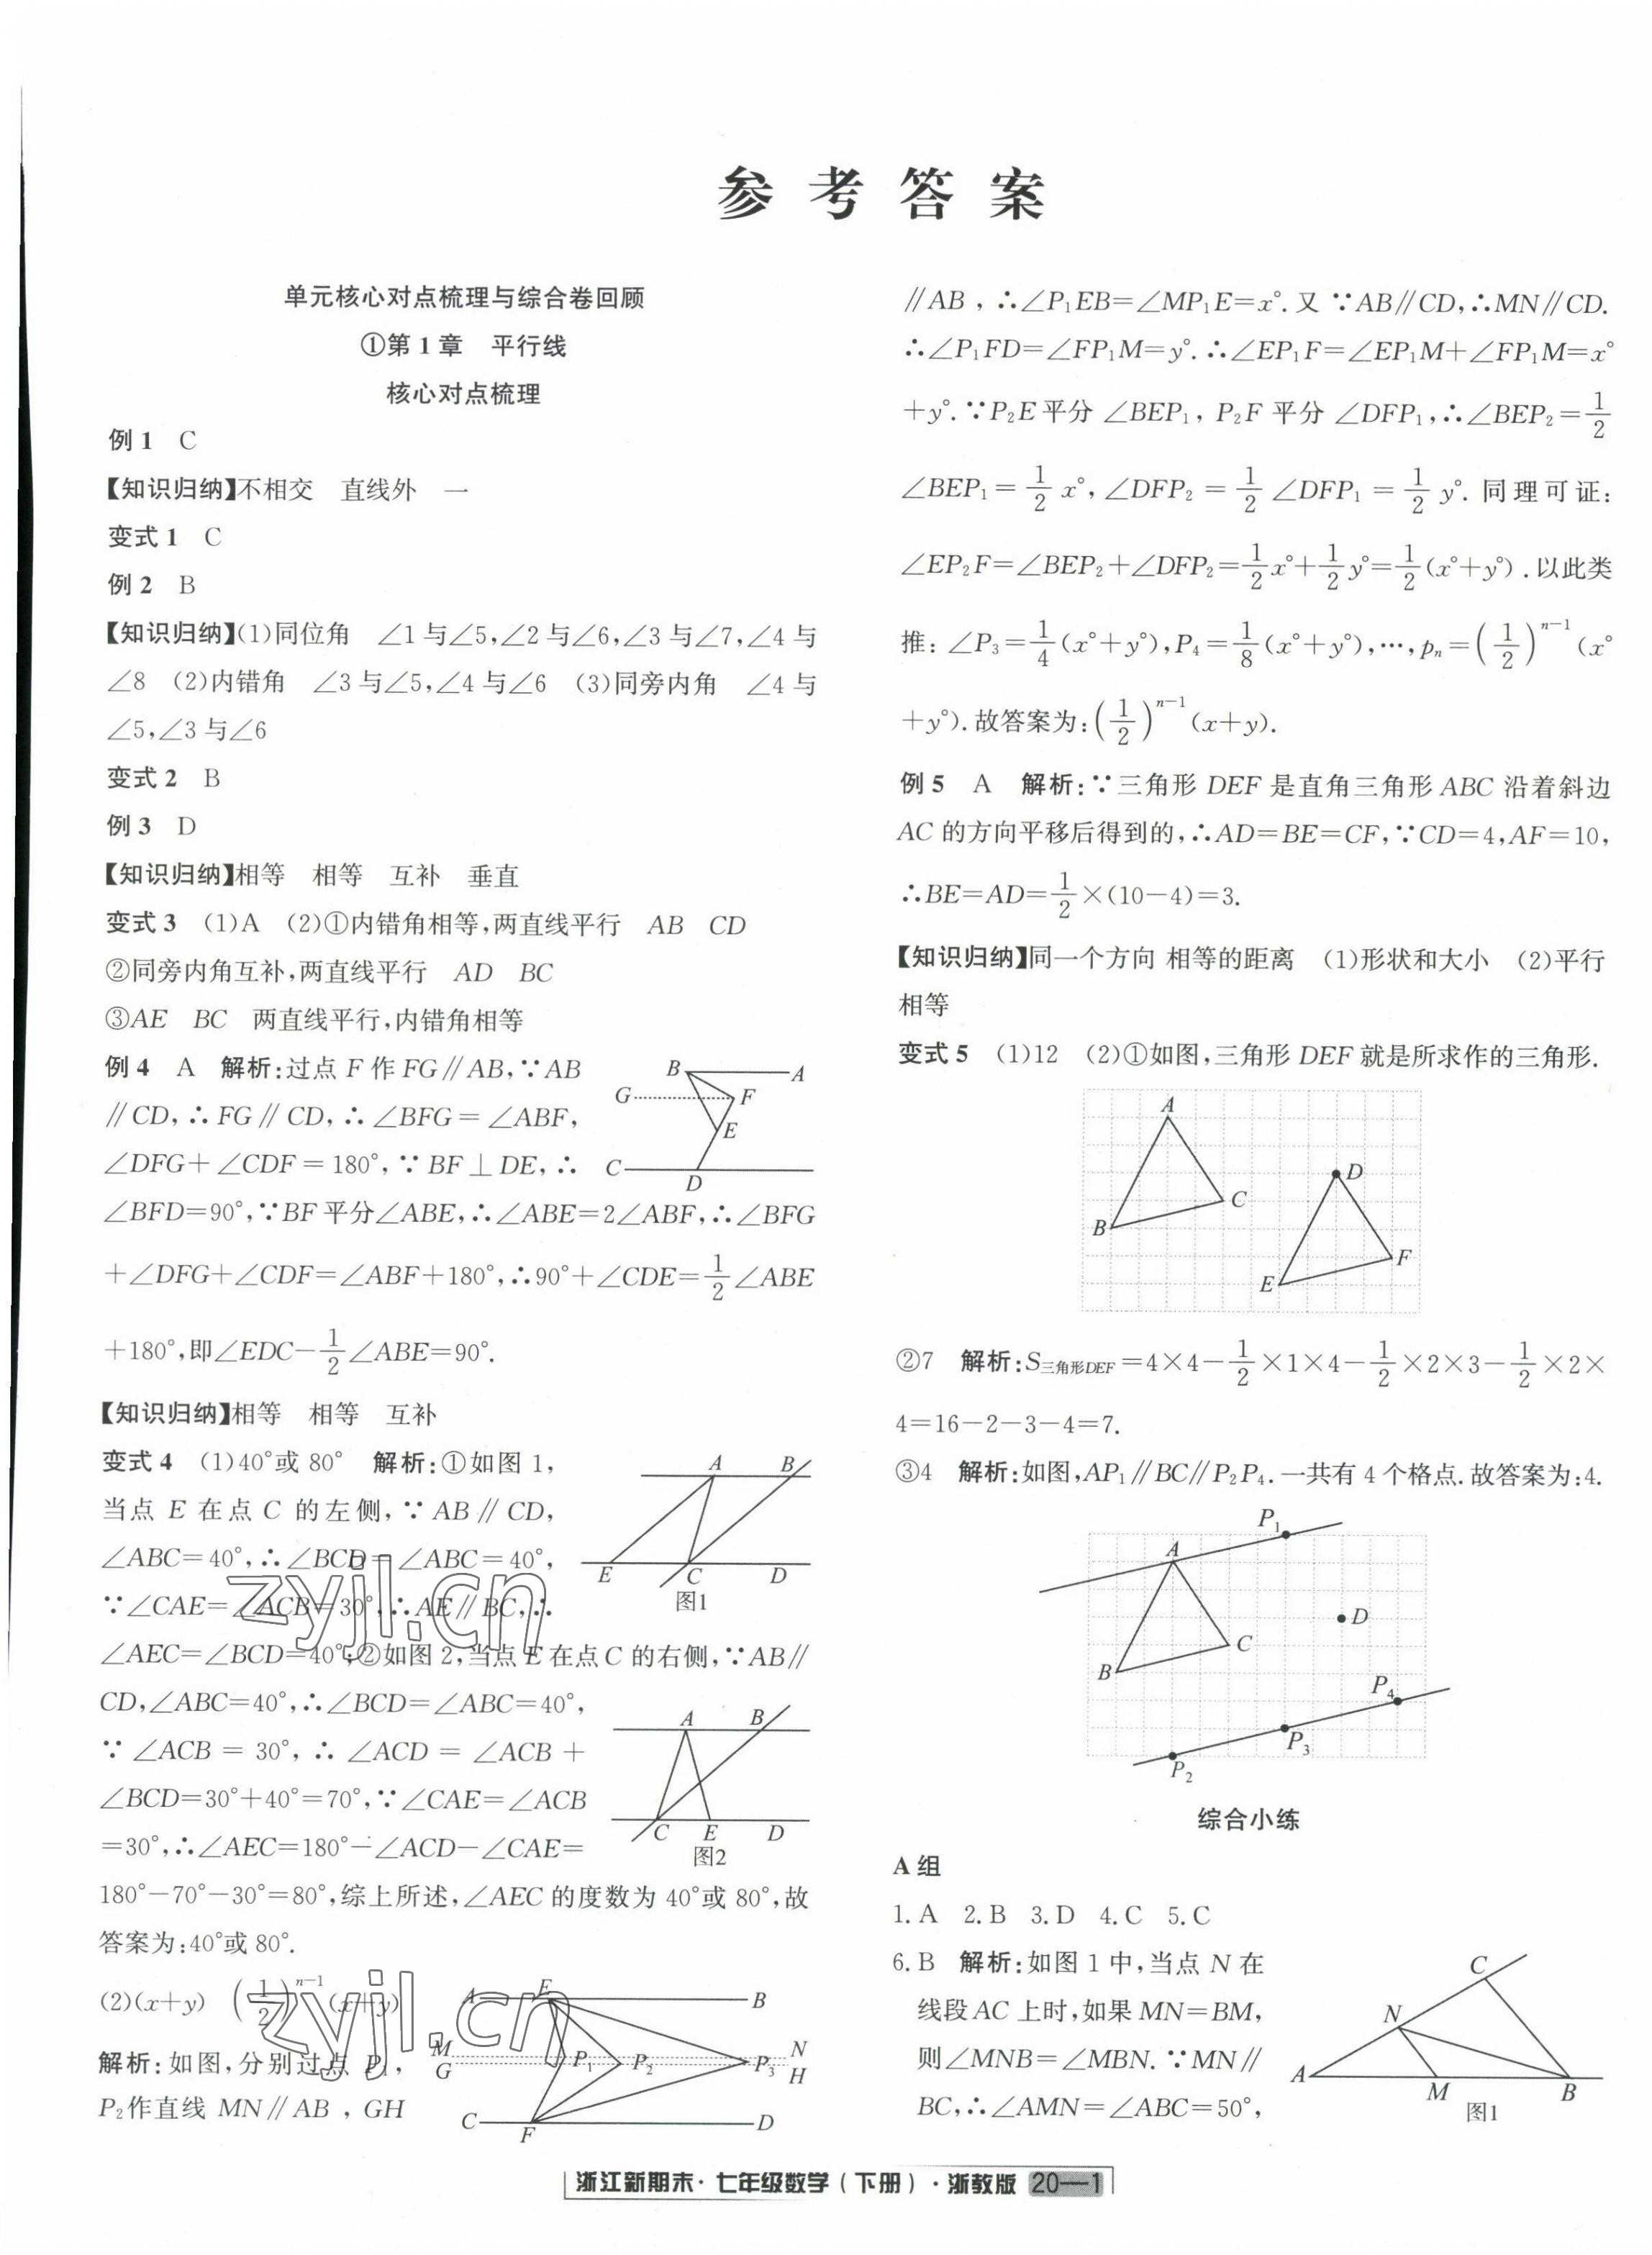 参考答案
单元核心对点梳理与综合卷回顾
①第1章 平行线
核心对点梳理
例1 C
【知识归纳】不相交 直线外 一
变式1 C
例2 B
【知识归纳】(1)同位角 ∠1与∠5,∠2与∠6,∠3与∠7,∠4与
∠8 (2)内错角 ∠3与∠5,∠4与∠6 (3)同旁内角 ∠4与
∠5,∠3与∠6
变式2 B
例3 D
【知识归纳】相等 相等 互补 垂直
变式3 (1)A (2)①内错角相等,两直线平行 AB CD
②同旁内角互补,两直线平行 AD BC
③AE BC 两直线平行,内错角相等
例4 A 解析:过点F作FG∥AB,∵AB
∥CD,∴FG∥CD,∴∠BFG=∠ABF,
∠DFG+∠CDF=180°,∵BF⊥DE,∴
∠BFD=90°,∵BF平分∠ABE,∴∠ABE=2∠ABF,∴∠BFG
+∠DFG+∠CDF=∠ABF+180°,∴90°+∠CDE=1/2∠ABE
+180°,即∠EDC-1/2∠ABE=90°.
B A
G F
E
C
D
【知识归纳】相等 相等 互补
变式4 (1)40°或80° 解析:①如图1,
当点E在点C的左侧,∵AB∥CD,
∠ABC=40°,∴∠BCD=∠ABC=40°,
∵∠CAE=∠ACB=30°,∴AE∥BC,∴
∠AEC=∠BCD=40°;②如图2,当点E在点C的右侧,∵AB∥
CD,∠ABC=40°,∴∠BCD=∠ABC=40°,
∵∠ACB=30°,∴∠ACD=∠ACB+
∠BCD=30°+40°=70°,∵∠CAE=∠ACB
=30°,∴∠AEC=180°-∠ACD-∠CAE=
180°-70°-30°=80°,综上所述,∠AEC的度数为40°或80°,故
答案为:40°或80°.
A B
E C D
图1
A B
C E D
图2
zyjl.cn
(2)(x+y) (1/2)^(n-1)(x+y)
解析:如图,分别过点P₁,
P₂作直线MN∥AB,GH
A E B
M N
G P₁ P₂ P₃ H
C F D
zyjl.cn
∥AB,∴∠P₁EB=∠MP₁E=x°.又∵AB∥CD,∴MN∥CD.
∴∠P₁FD=∠FP₁M=y°.∴∠EP₁F=∠EP₁M+∠FP₁M=x°
+y°.∵P₂E平分∠BEP₁,P₂F平分∠DFP₁,∴∠BEP₂=1/2
∠BEP₁=1/2x°,∠DFP₂=1/2∠DFP₁=1/2y°.同理可证:
∠EP₂F=∠BEP₂+∠DFP₂=1/2x°+1/2y°=1/2(x°+y°).以此类
推:∠P₃=1/4(x°+y°),P₄=1/8(x°+y°),…,pₙ=(1/2)^(n-1)(x°
+y°).故答案为:(1/2)^(n-1)(x+y).
例5 A 解析:∵三角形DEF是直角三角形ABC沿着斜边
AC的方向平移后得到的,∴AD=BE=CF,∵CD=4,AF=10,
∴BE=AD=1/2×(10-4)=3.
【知识归纳】同一个方向 相等的距离 (1)形状和大小 (2)平行
相等
变式5 (1)12 (2)①如图,三角形DEF就是所求作的三角形.
A
D
C
B
F
E
②7 解析:S三角形DEF=4×4-1/2×1×4-1/2×2×3-1/2×2×
4=16-2-3-4=7.
③4 解析:如图,AP₁∥BC∥P₂P₄.一共有4个格点.故答案为:4.
P₁
A
D
C
B
P₄
P₃
P₂
综合小练
A组
1.A 2.B 3.D 4.C 5.C
6.B 解析:如图1中,当点N在
线段AC上时,如果MN=BM,
则∠MNB=∠MBN.∵MN∥
BC,∴∠AMN=∠ABC=50°,
C
N
A M B
图1
浙江新期末·七年级数学(下册)·浙教版 20—1